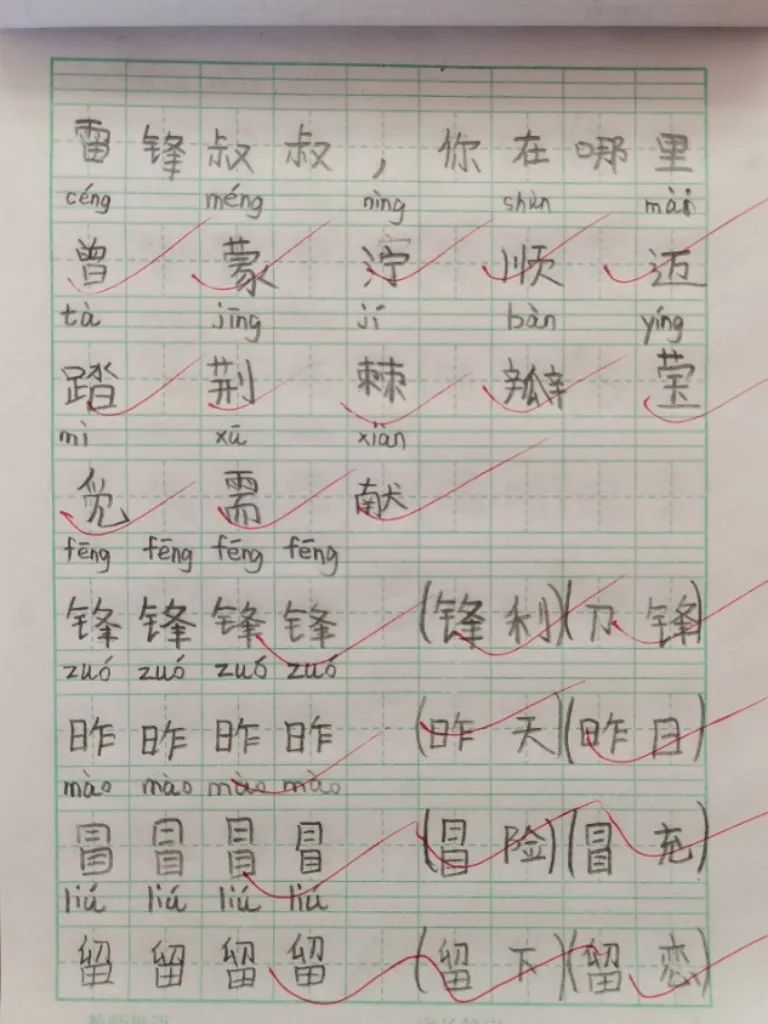 雷锋叔叔，你在哪里
céng méng nìng shùn mài
曾 蒙 泞 顺 迈
tà jīng jí bàn yíng
踏 荆 棘 瓣 莹
mì xū xiàn
觅 需 献
fēng fēng fēng fēng
锋 锋 锋 锋 (锋利)(刀锋)
zuó zuó zuó zuó
昨 昨 昨 昨 (昨天)(昨日)
mào mào mào mào
冒 冒 冒 冒 (冒险)(冒充)
liú liú liú liú
留 留 留 留 (留下)(留恋)